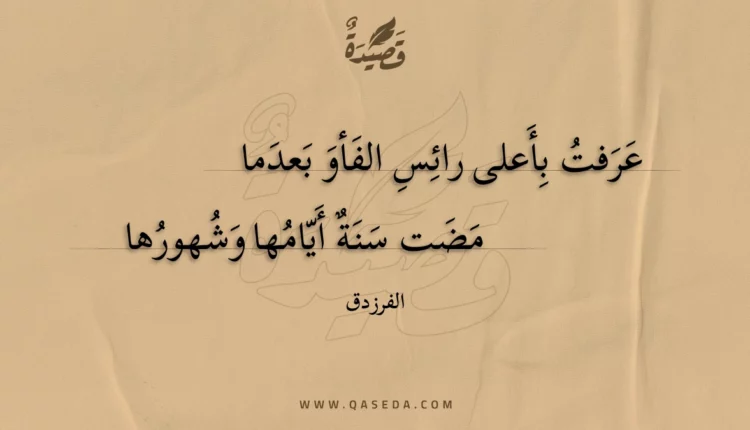 قَصِيدَةٌ
عَرَفتُ بِأَعلى رائِسِ الفَأوَ بَعدَما
مَضَت سَنَةٌ أَيّامُها وَشُهورُها
الفرزدق
WWW.QASEDA.COM